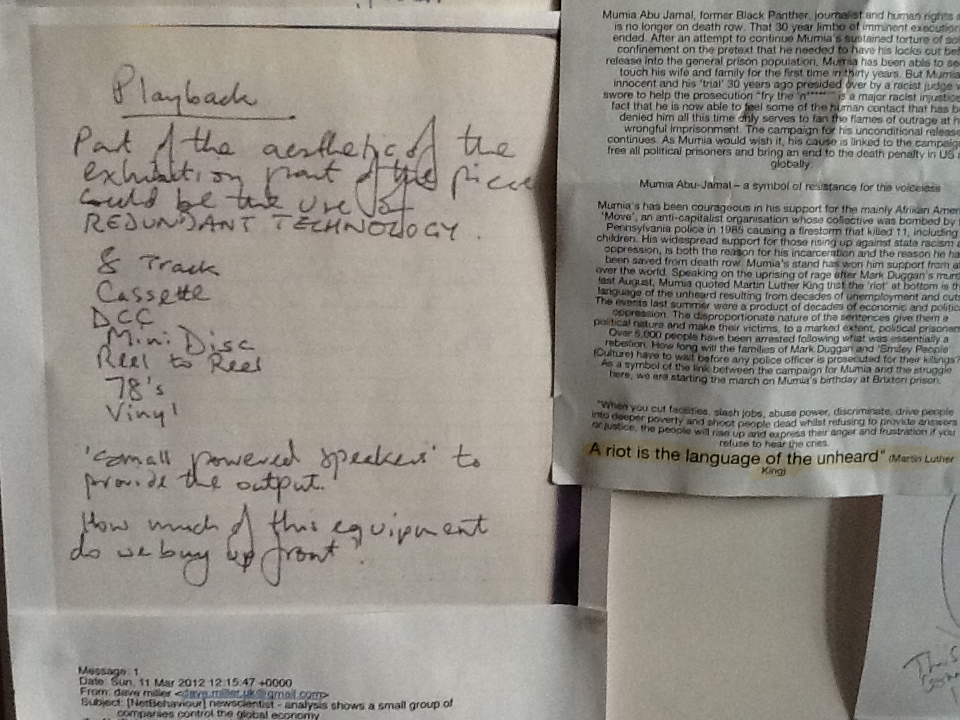 Playback
Part of the aesthetic of the
exhibition part of the piece
could be the use of
REDUNDANT TECHNOLOGY.
8 Track
Cassette
DCC
Mini Disc
Reel to Reel
78's
Vinyl
'small powered speakers' to
provide the output.
How much of this equipment
do we buy up front?
Message: 1
Date: Sun, 11 Mar 2012 12:15:47 +0000
From: dave miller <dave.miller.uk@gmail.com>
Subject: [NetBehaviour] newscientist - analysis shows a small group of
companies control the global economy
Mumia Abu Jamal, former Black Panther, journalist and human rights
is no longer on death row. That 30 year limbo of imminent execution
ended. After an attempt to continue Mumia's sustained torture of
confinement on the pretext that he needed to have his locks cut
release into the general prison population, Mumia has been able to
touch his wife and family for the first time in thirty years. But Mumia
innocent and his 'trial' 30 years ago presided over by a racist judge
swore to help the prosecution "fry the 'n*****'" is a major racist injustice
fact that he is now able to feel some of the human contact that has
denied him all this time only serves to fan the flames of outrage at
wrongful imprisonment. The campaign for his unconditional release
continues. As Mumia would wish it, his cause is linked to the campaign
free all political prisoners and bring an end to the death penalty in US
globally.
Mumia Abu-Jamal – a symbol of resistance for the voiceless
Mumia's has been courageous in his support for the mainly Afrikan
'Move', an anti-capitalist organisation whose collective was bombed by
Pennsylvania police in 1985 causing a firestorm that killed 11, including
children. His widespread support for those rising up against state racism
oppression, is both the reason for his incarceration and the reason he
been saved from death row. Mumia's stand has won him support from
over the world. Speaking on the uprising of rage after Mark Duggan's
last August, Mumia quoted Martin Luther King that the 'riot' at bottom is
language of the unheard resulting from decades of unemployment and
The events last summer were a product of decades of economic and
oppression. The disproportionate nature of the sentences give them a
political nature and make their victims, to a marked extent, political
Over 5,000 people have been arrested following what was essentially a
rebellion. How long will the families of Mark Duggan and 'Smiley People'
(Culture) have to wait before any police officer is prosecuted for their killings?
As a symbol of the link between the campaign for Mumia and the struggle
here, we are starting the march on Mumia's birthday at Brixton prison.
"When you cut facilities, slash jobs, abuse power, discriminate, drive people
into deeper poverty and shoot people dead whilst refusing to provide answers
or justice, the people will rise up and express their anger and frustration if you
refuse to hear the cries.
A riot is the language of the unheard" (Martin Luther
King)
This